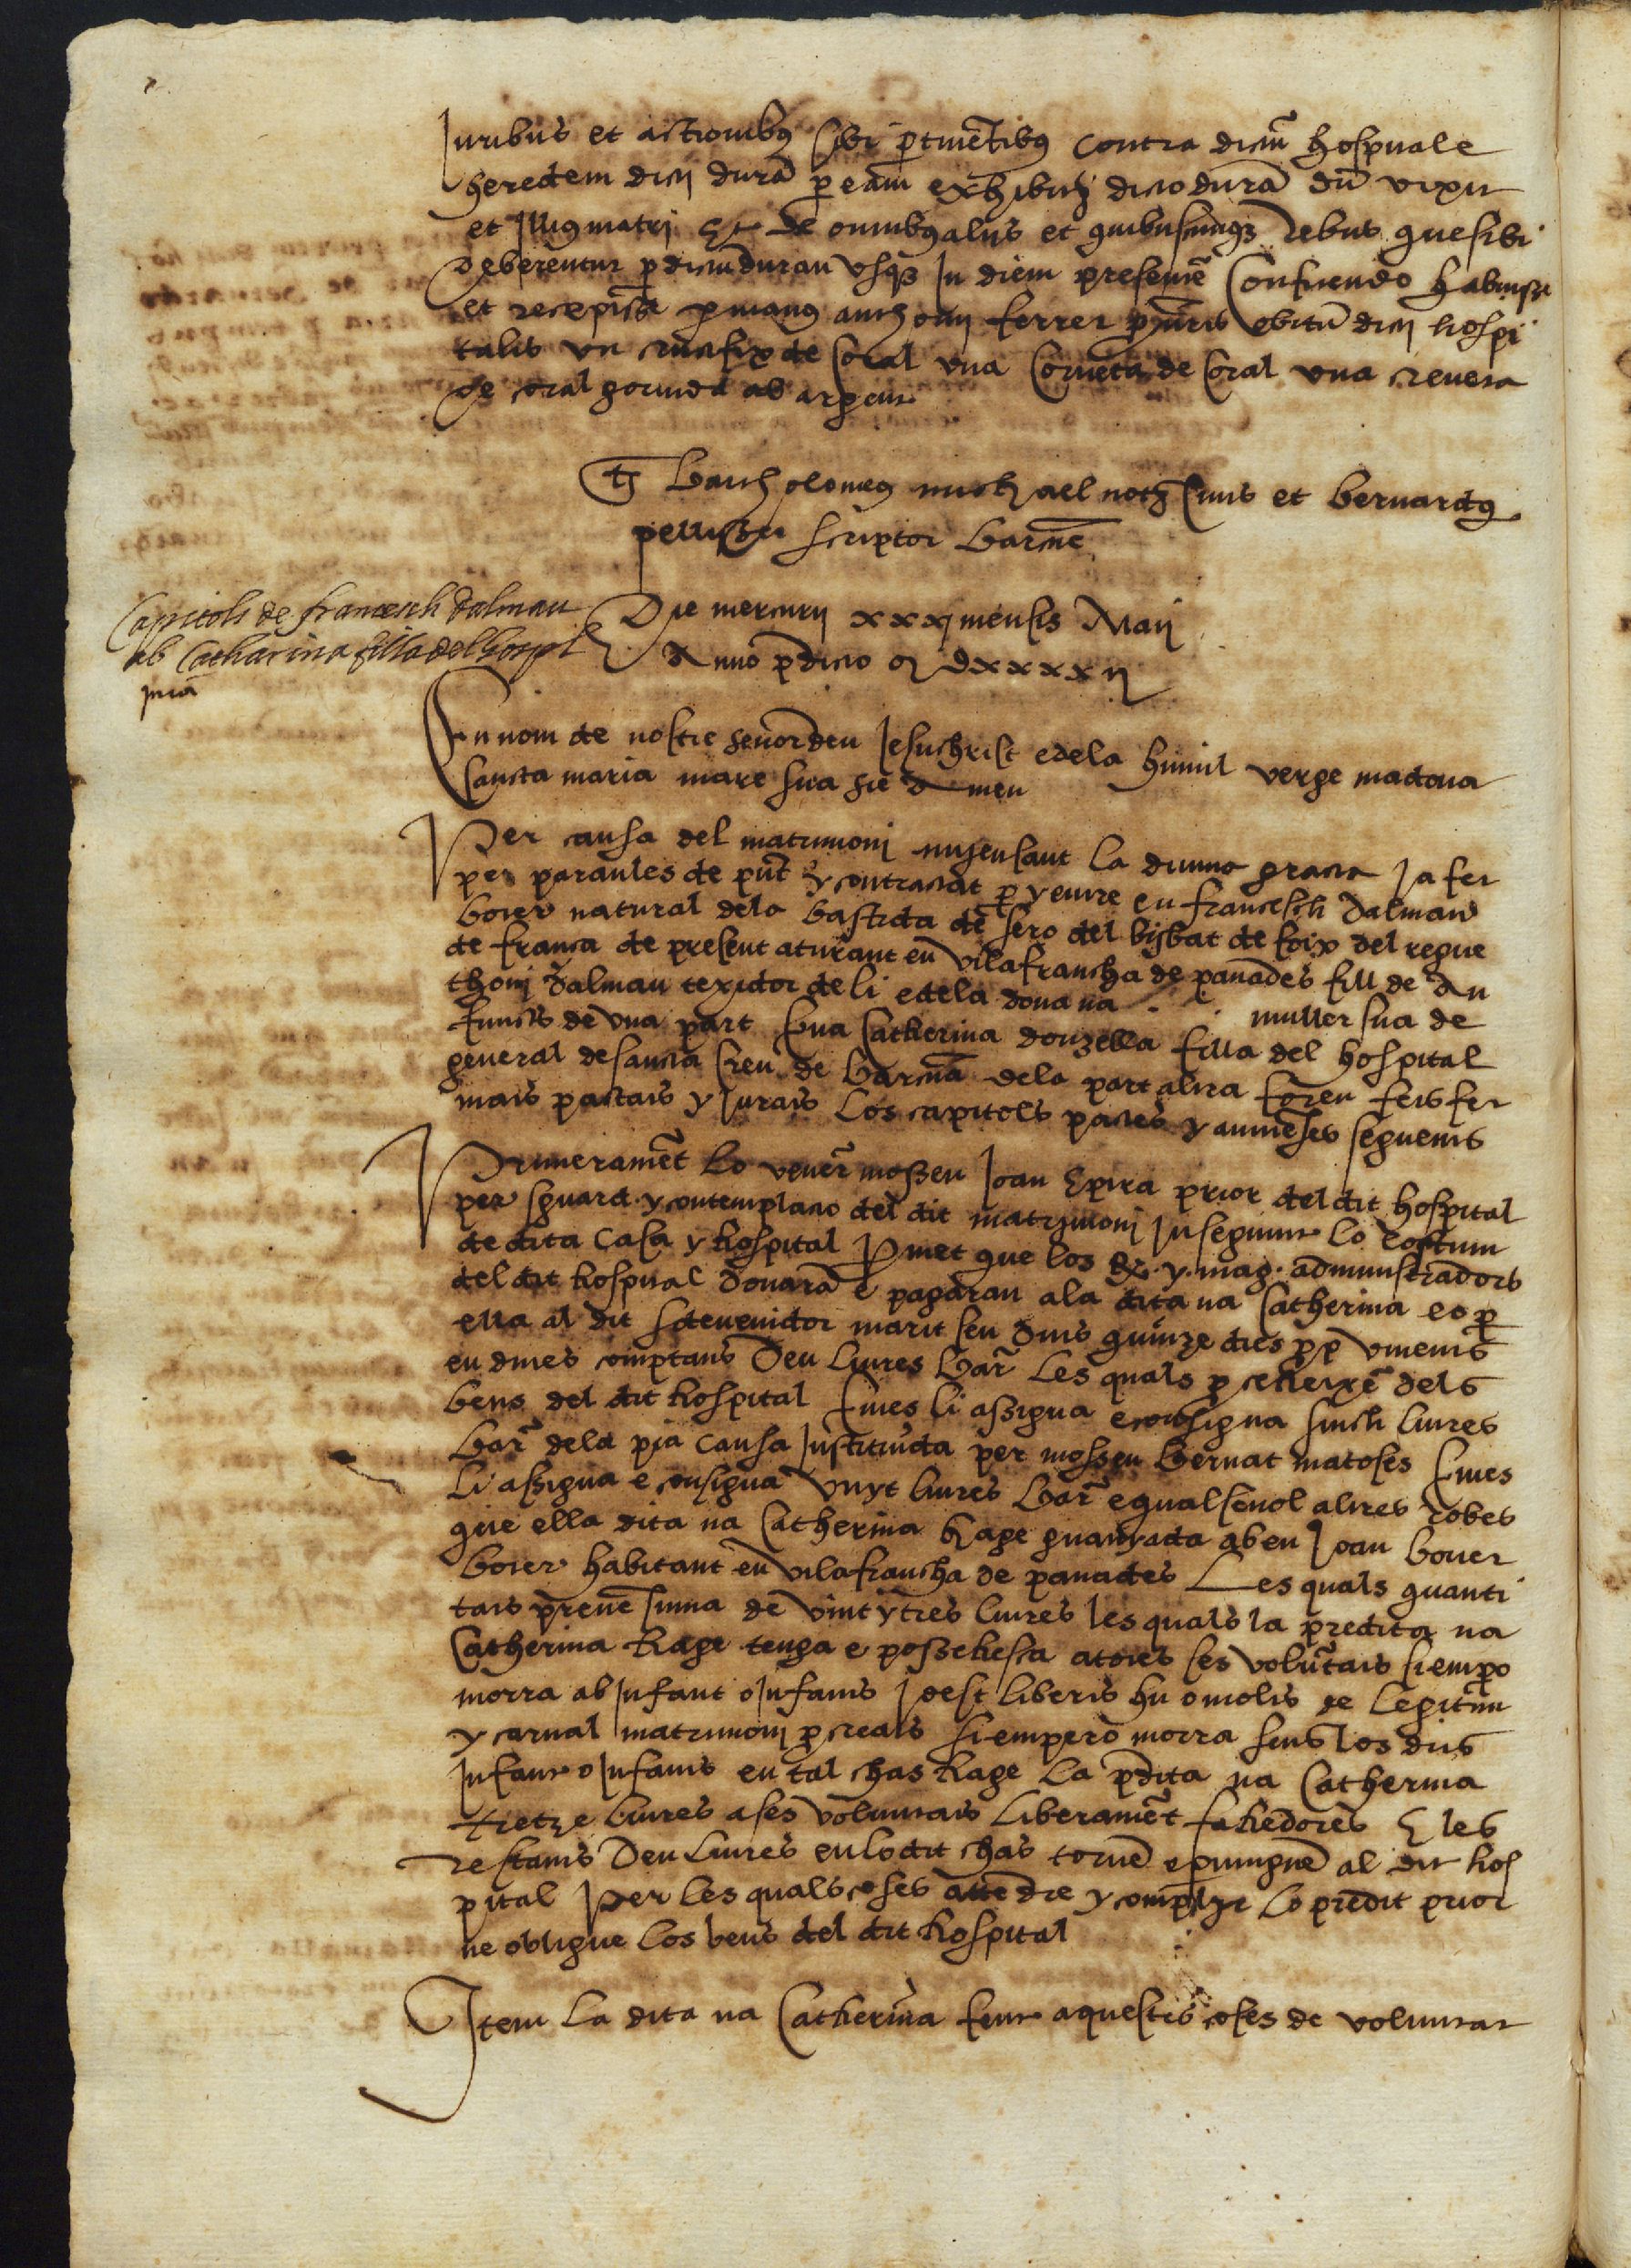 Juribus et actionibus sibi ptinētibus contra dictū hospitale
heredem dicti durā p eam exhibitis dicto durā dū vixit
et illius matri Et de omnibus alijs et quibuscunqz rebus que sibi
deberentur p dictū duran usqz in diem presentē Confitendo habuisse
et recepisse p manus anthonij ferrer obitū dicti hospi
talis un crucifix de coral una corneta de coral una creueta
de coral gornida ab argent
ts Bartholomeus michael not9 civis et bernardus
pellisser scriptor barcnē
Capitols de francesch dalmau
ab Catharina filla del hospl
jurā
Die mercurij xxxj mensis Maij
Anno pdicto M dxxxxij
En nom de nostre senor deu Jesuchrist e dela humil verge madona
sancta maria mare sua sie Amen
Per causa del matrimoni mijensant la divina gracia ja fer
per paraules de pnt y contractat p y entre en francesch dalmau
boter natural dela bastida de sero del bisbat de foix del regne
de frança de present aturant en vilafrancha de panades fill de An
thonj dalmau texidor de li e dela dona na . . muller sua de
functs de una part E na Catherina donzella filla del hospital
general de sancta creu de barcna dela part altra foren fets fer
mats pactats y jurats los capitols pactes y avinēses seguents
Primeramēt lo venerē mossen Joan Epira prior del dit hospital
per sguard y contemplacio del dit matrimoni jnseguint lo costum
de dita casa y hospital pmet que los Rts y mag. administradors
del dit hospital donarā e pagaran ala dita na Catherina e o p
ella al dit sdevenidor marit seu dins quinze dies pp vinents
en dines comptans deu liures bar les quals p cehexē dels
bens del dit hospital E mes li assigna e consigna sinch liures
bar dela pia causa jnstituida per mossen bernat matoses E mes
li assigna e consigna vuyt liures bar e qualsevol altres robes
que ella dita na Catherina hage guanyada ab en Joan boter
boter habitant en vilafrancha de panades Les quals quanti
tats prenē suma de vint y tres liures les quals la predita na
Catherina hage tenga e possehesca a totes ses volūtats si empo
morra ab jnfant o jnfants jdest liberis hu o molts de legitim
y carnal matrimonj pcreats si empero morra sens los dits
jnfant o jnfants en tal chas hage la pdita na Catherina
tretze liures a ses voluntats liberamēt fahedores E les
restants deu liures en lo dit chas tornē e pvinguē al dit hos
pital Per les quals coses attēdre y complir lo predit prior
ne obligue los bens del dit hospital
Item la dita na Catherina fent aquestes coses de voluntat